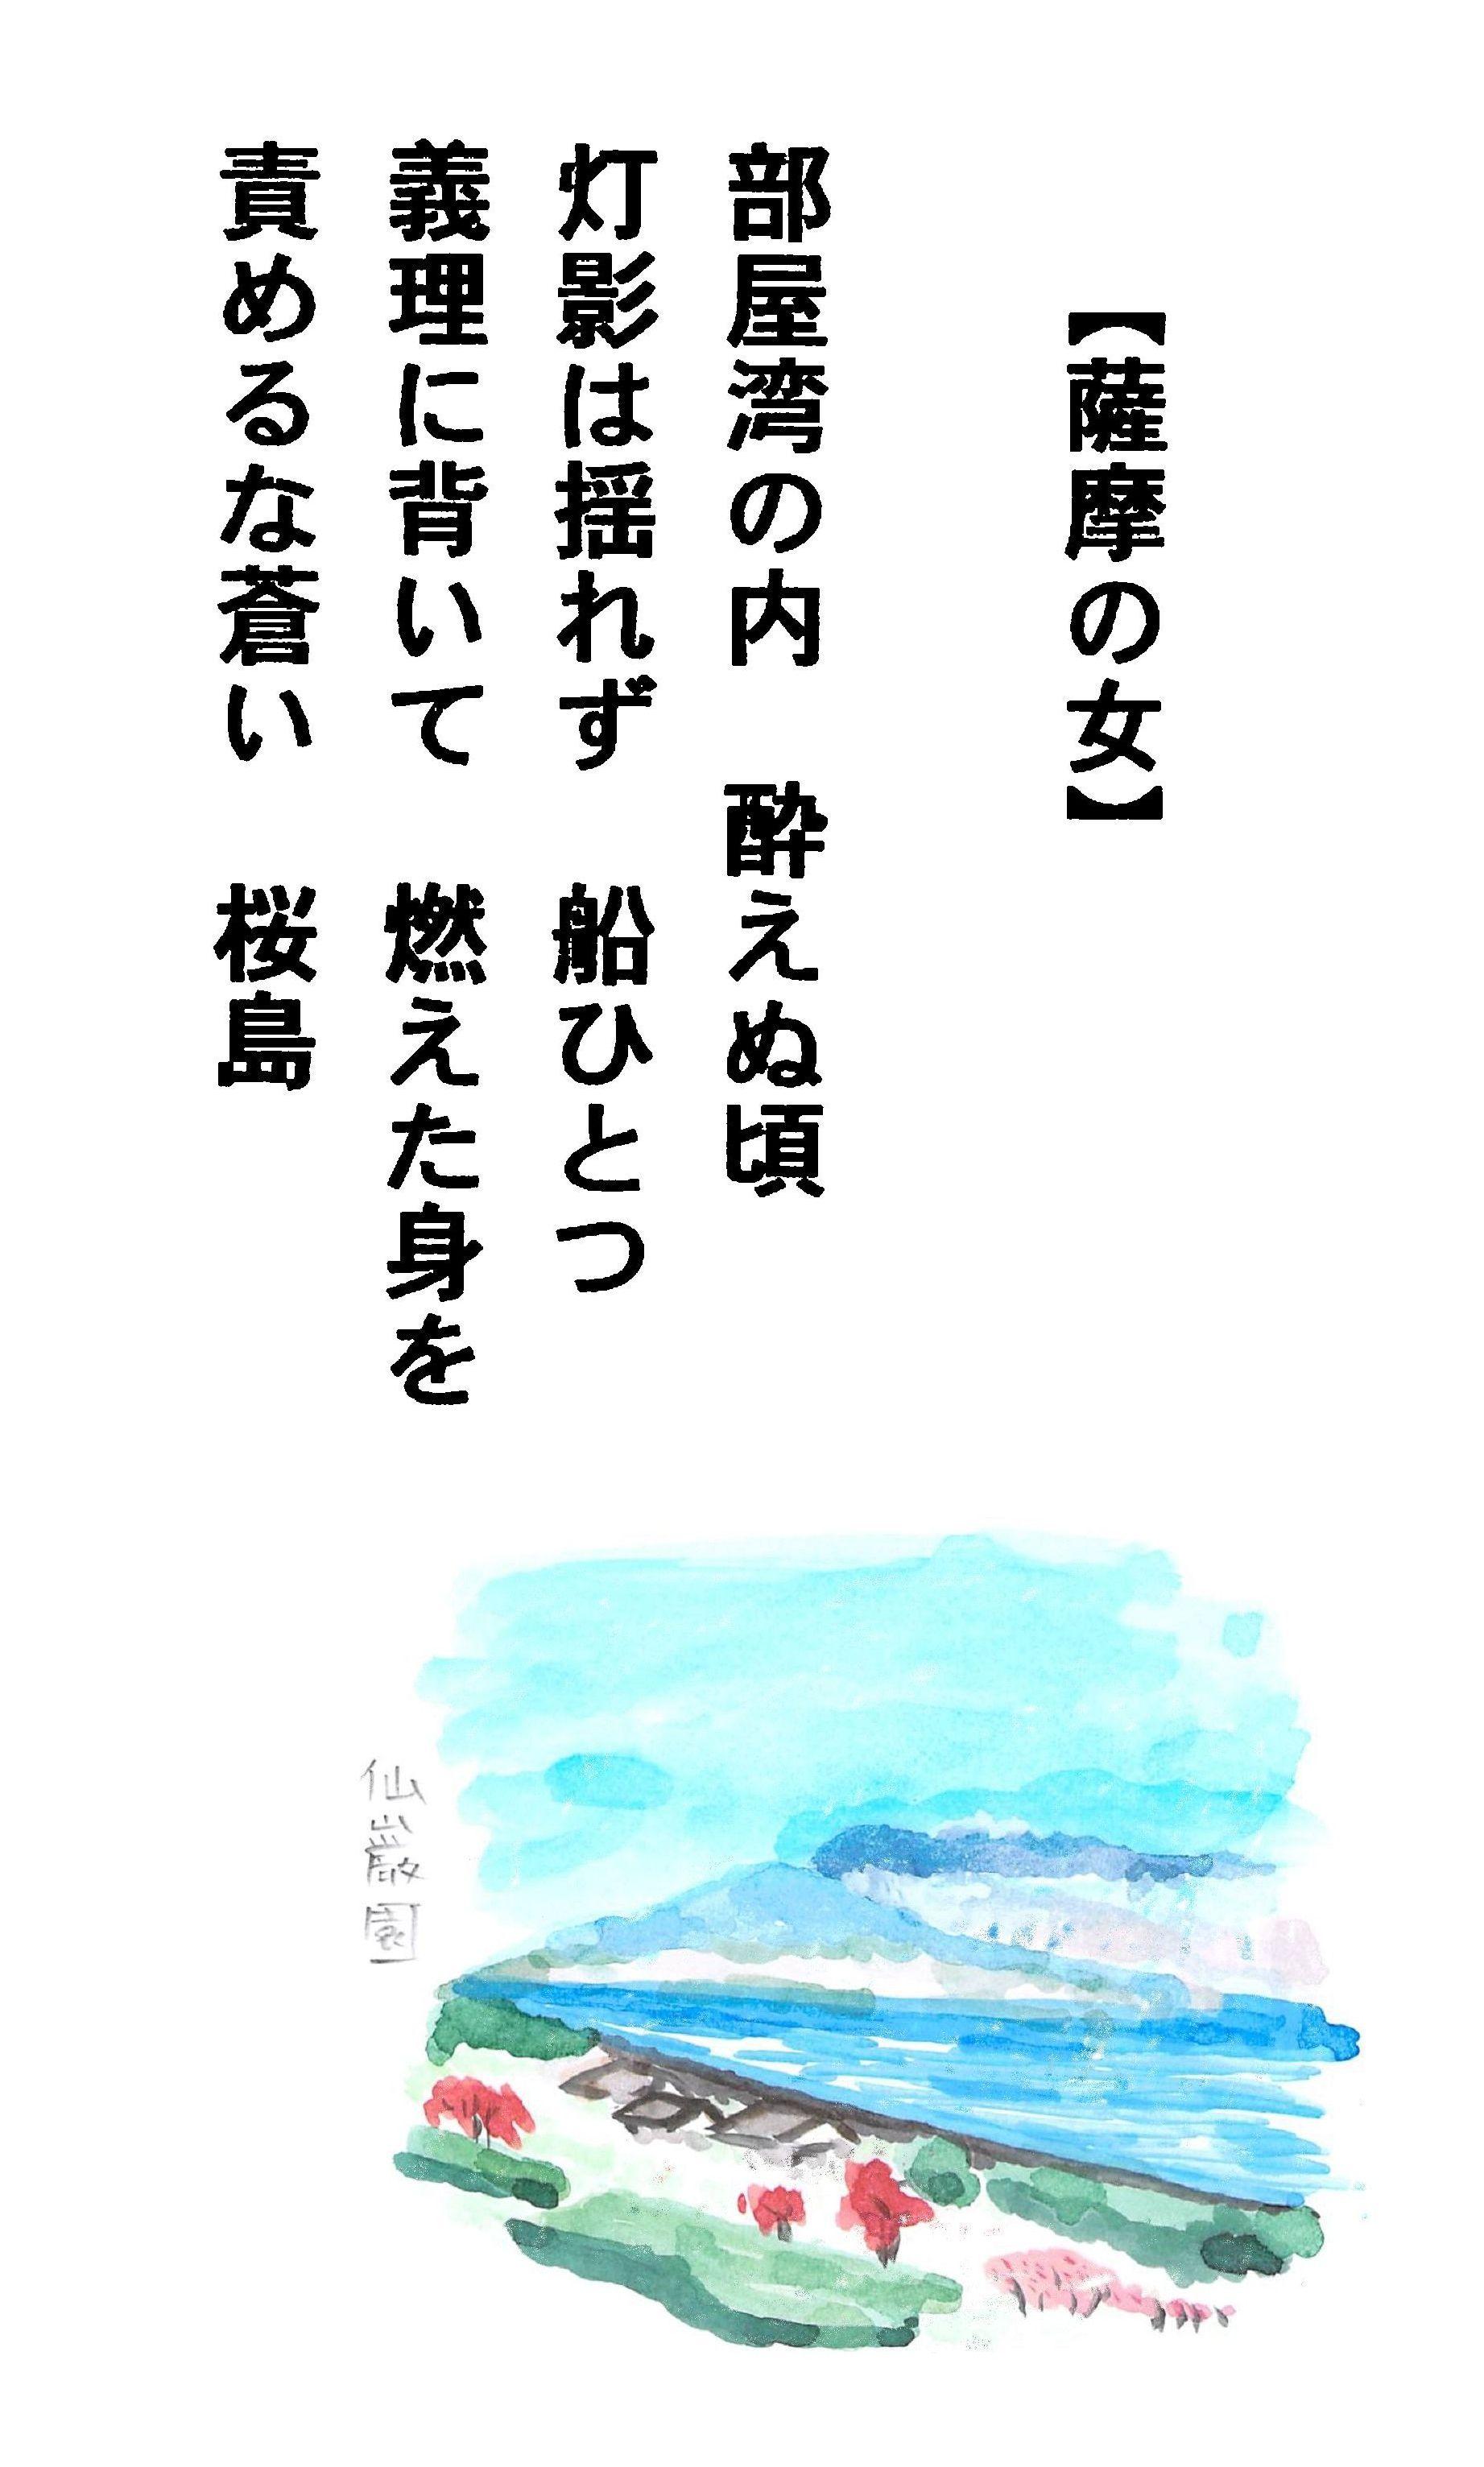 【薩摩の女】
部屋湾の内　酔えぬ頃
灯影は揺れず　船ひとつ
義理に背いて　燃えた身を
責めるな蒼い　桜島
仙巌園